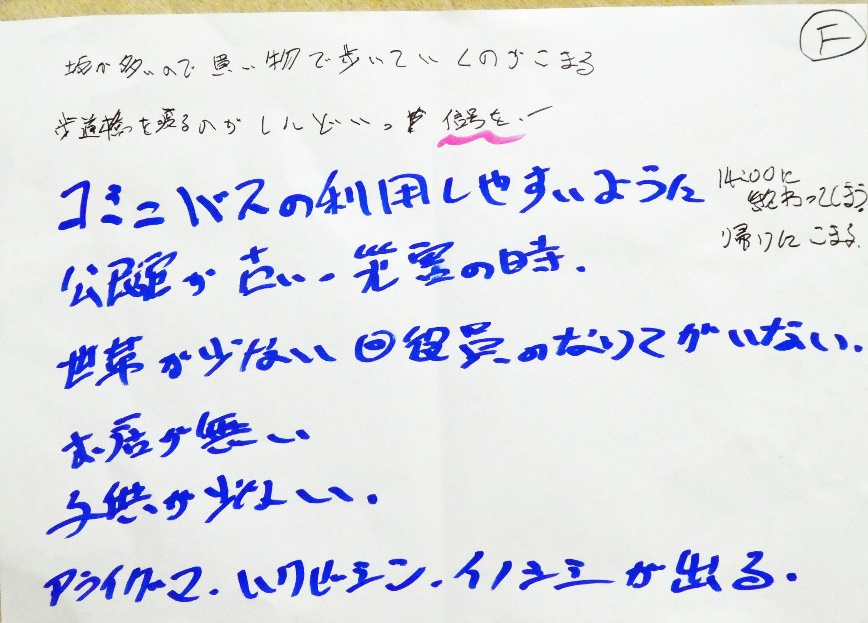 F
坂が多いので買い物で歩いていくのがこまる
歩道橋を渡るのがしんどい。信号を!
コミニバスの利用しやすいように
14:00に
終わってしまう
帰りにこまる。
公民館が古い。災害の時.
世帯が少ない 役員のなりてがいない.
お店が無い
子供が少ない.
アライグマ.ハクビーシン.イノシシが出る.